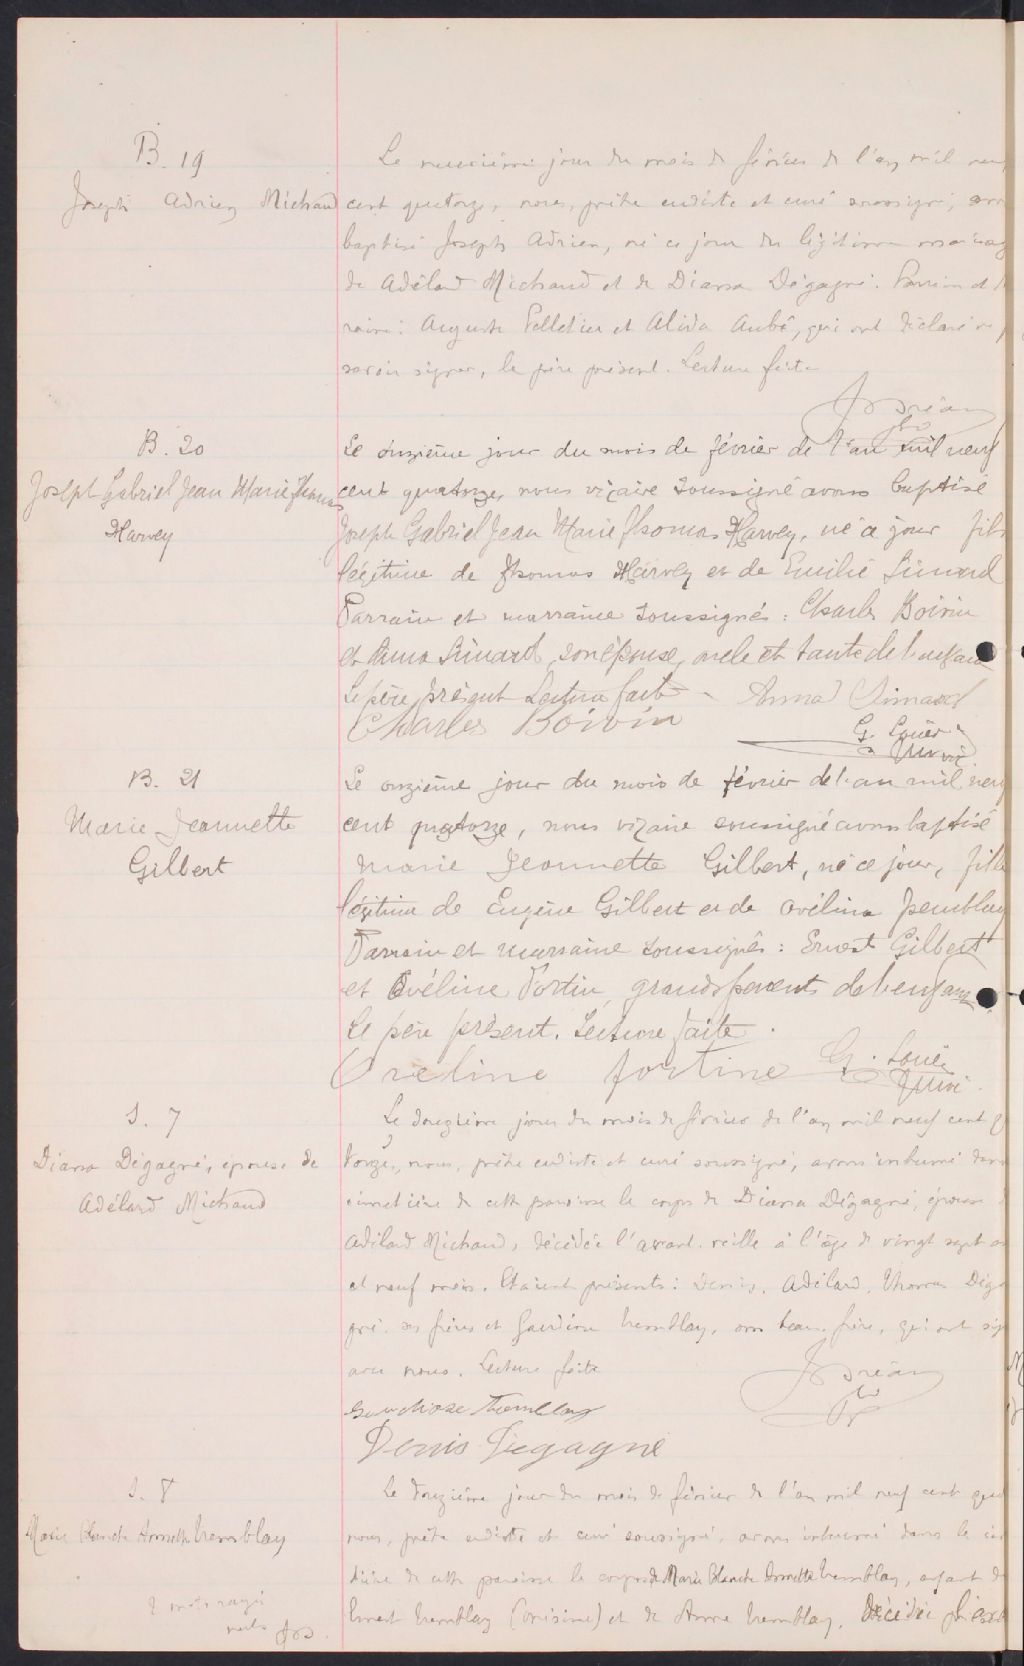 B. 19
Joseph Adrien Michaud
Le neuvième jour du mois de février de l'an mil neu
cent quatorze, nous, prêtre eudiste et curé soussigné, avo
baptisé Joseph Adrien, né ce jour du légitime mariag
de Adélard Michaud et de Diana Dégagné. Parrain et
raine: Auguste Pelletier et Alida Aubé, qui ont déclaré ne
savoir signer, le père présent. Lecture faite
B. 20
Joseph Gabriel Jean Marie Thomas
Harvey
Le onzième jour du mois de février de l'an mil neuf
cent quatorze, nous vicaire soussigné avons baptisé
Joseph Gabriel Jean Marie Thomas Harvey, né ce jour fils
légitime de Thomas Harvey et de Emilie Simard
Parrain et marraine soussignés: Charles Boivin
et Anna Simard, son épouse, oncle et tante de l'enfant
Le père présent Lecture faite - Anna Simard
Charles Boivin
B. 21
Marie Jeannette
Gilbert
Le onzième jour du mois de février de l'an mil neuf
cent quatorze, nous vicaire soussigné avons baptisé
Marie Jeannette Gilbert, né ce jour, fille
légitime de Eugène Gilbert et de Avélina Tremblay
Parrain et marraine soussignés: Ernest Gilbert
et Ovéline Fortin, grands parents de l'enfant.
Le père présent. Lecture faite.
Oveline fortine
S. 7
Diana Dégagné, épouse de
Adélard Michaud
Le douzième jour du mois de février de l'an mil neuf cent q
torze, nous, prêtre eudiste et curé soussigné, avons inhumé dans
cimetière de cette paroisse le corps de Diana Dégagné, épouse
Adélard Michaud, décédée l'avant-veille à l'âge de vingt sept an
et neuf mois. Etaient présents: Denis, Adélard, Thomas Déga
gné, ses frères et Gaudiose Tremblay, son beau-frère, qui ont sig
avec nous. Lecture faite
Gaudiose Tremblay
Denis Degagne
S. 8
Marie Blanche Annette Tremblay
Le douzième jour du mois de février de l'an mil neuf cent qua
nous, prêtre eudiste et curé soussigné, avons inhumé dans le cim
tière de cette paroisse le corps de Marie Blanche Annette Tremblay, enfant de
Ernest Tremblay (Onésime) et de Anna Tremblay, décédée
2 mots rayés
nuls